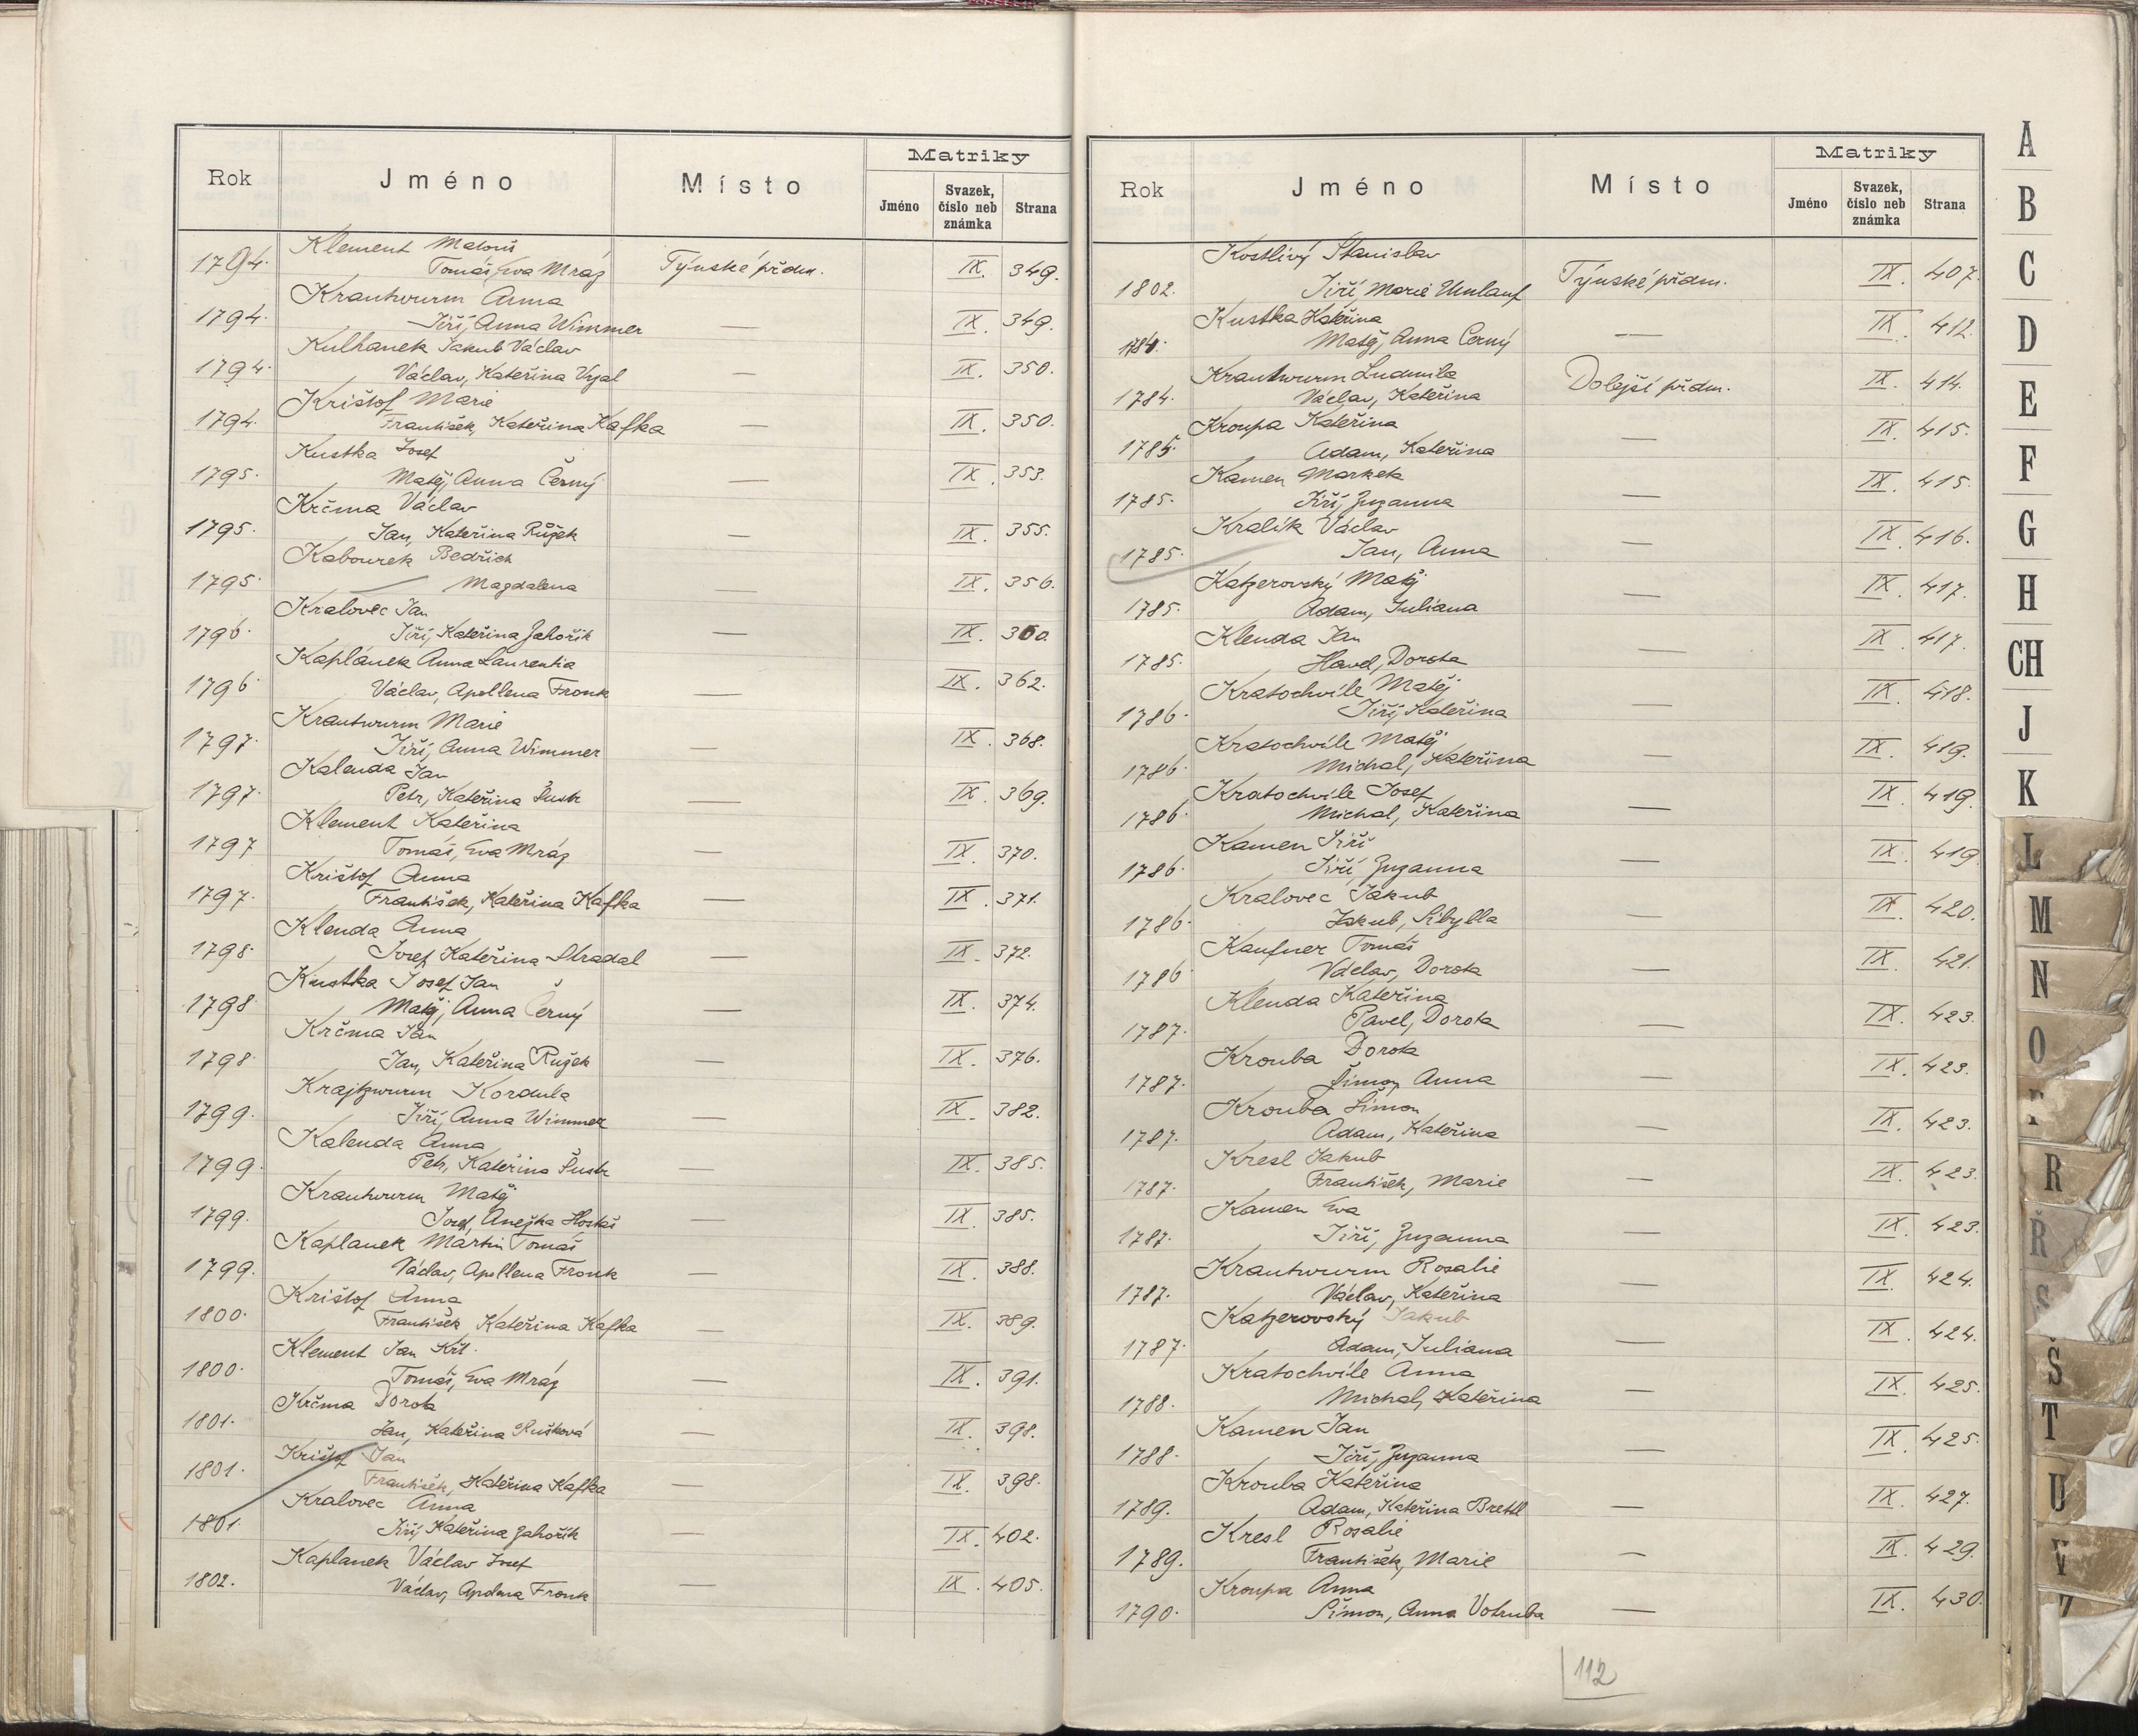 Rok Jméno Místo Matriky
Jméno Svazek, číslo neb známka Strana
Klement Matouš
1794. Tomáš, Eva Mráz Týnské předm. IX. 349.
Krautwurm Anna
1794. Jiří, Anna Wimmer — IX. 349.
Kulhanek Jakub Václav
1794. Václav, Kateřina Vyal — IX. 350.
Krištof Marie
1794. František, Kateřina Kafka — IX. 350.
Kustka Josef
1795. Matěj, Anna Černý — IX. 353.
Krčma Václav
1795. Jan, Kateřina Růžek — IX. 355.
Kabourek Bedřich
1795. — Magdalena IX. 356.
Kralovec Jan
1796. Jiří, Kateřina Zahořik — IX. 360.
Kaplánek Anna Laurentia
1796. Václav, Apollena Fronk — IX. 362.
Krautwurm Marie
1797. Jiří, Anna Wimmer — IX. 368.
Kalenda Jan
1797. Petr, Kateřina Šustr — IX. 369.
Klement Kateřina
1797 Tomáš, Eva Mráz — IX. 370.
Krištof Anna
1797. František, Kateřina Kafka — IX. 371.
Klenda Anna
1798. Josef Kateřina Stradal — IX. 372.
Kustka Josef Jan
1798. Matěj, Anna Černý — IX. 374.
Krčma Jan
1798. Jan, Kateřina Ružek — IX. 376.
Krajtzwurm Kordula
1799. Jiří, Anna Wimmer — IX. 382.
Kalenda Anna
1799. Petr, Kateřina Šustr — IX. 385.
Krautwurm Matěj
1799. Josef, Anežka Hostaš — IX. 385.
Kaplanek Martin Tomáš
1799. Václav, Apollena Fronk — IX. 388.
Krištof Anna
1800. František Kateřina Kafka — IX. 389.
Klement Jan Křt.
1800. Tomáš, Eva Mráz — IX. 391.
Krčma Dorota
1801. Jan, Kateřina Rušková — IX. 398.
Krištof Jan
1801. František, Kateřina Kafka — IX. 398.
Kralovec Anna
1801. Jiří, Kateřina Zahořik — IX. 402.
Kaplanek Václav Josef
1802. Václav, Apolena Fronk — IX. 405.
Rok Jméno Místo Matriky
Jméno Svazek, číslo neb známka Strana
Kostlivý Stanislav
1802. Jiří, Marie Umlauf Týnské předm. IX. 407.
Kustka Kateřina
1784. Matěj, Anna Černý — IX. 412.
Krautwurm Ludmila
1784. Václav, Kateřina Dolejší předm. IX. 414.
Kroupa Kateřina
1785. Adam, Kateřina — IX. 415.
Kamen Market
1785. Jiří, Zuzanna — IX. 415.
Kralík Václav
1785. Jan, Anna — IX. 416.
Katzerovský Matěj
1785. Adam, Juliana — IX. 417.
Klenda Jan
1785. Havel, Dorota — IX. 417.
Kratochvíle Matěj
1786. Jiří, Kateřina — IX. 418.
Kratochvíle Matěj
1786. Michal, Kateřina — IX. 419.
Kratochvíle Josef
1786. Michal, Kateřina — IX. 419.
Kamen Jiří
1786. Jiří, Zuzanna — IX. 419
Kralovec Jakub
1786. Jakub, Sibylla — IX. 420.
Kaufner Tomáš
1786 Václav, Dorota — IX. 421.
Klenda Kateřina
1787. Pavel, Dorota — IX. 423.
Krouba Dorota
1787. Šimon, Anna — IX. 423.
Krouba Šimon
1787. Adam, Kateřina — IX. 423.
Kresl Jakub
1787. František, Marie — IX. 423.
Kamen Eva
1787. Jiří, Zuzanna — IX. 423.
Krautwurm Rosalie
1787. Václav, Kateřina — IX. 424.
Katzerovský Jakub
1787. Adam, Juliana — IX. 424.
Kratochvíle Anna
1788. Michal, Kateřina — IX. 425.
Kamen Jan
1788. Jiří, Zuzanna — IX. 425.
Krouba Kateřina
1789. Adam, Kateřina Brettl — IX. 427.
Kresl Rosalie
1789. František, Marie — IX. 429.
Kroupa Anna
1790. Šimon, Anna Votruba — IX. 430.
112
A
B
C
D
E
F
G
H
CH
J
K
L
M
N
O
R
Ř
S
Š
T
U
V